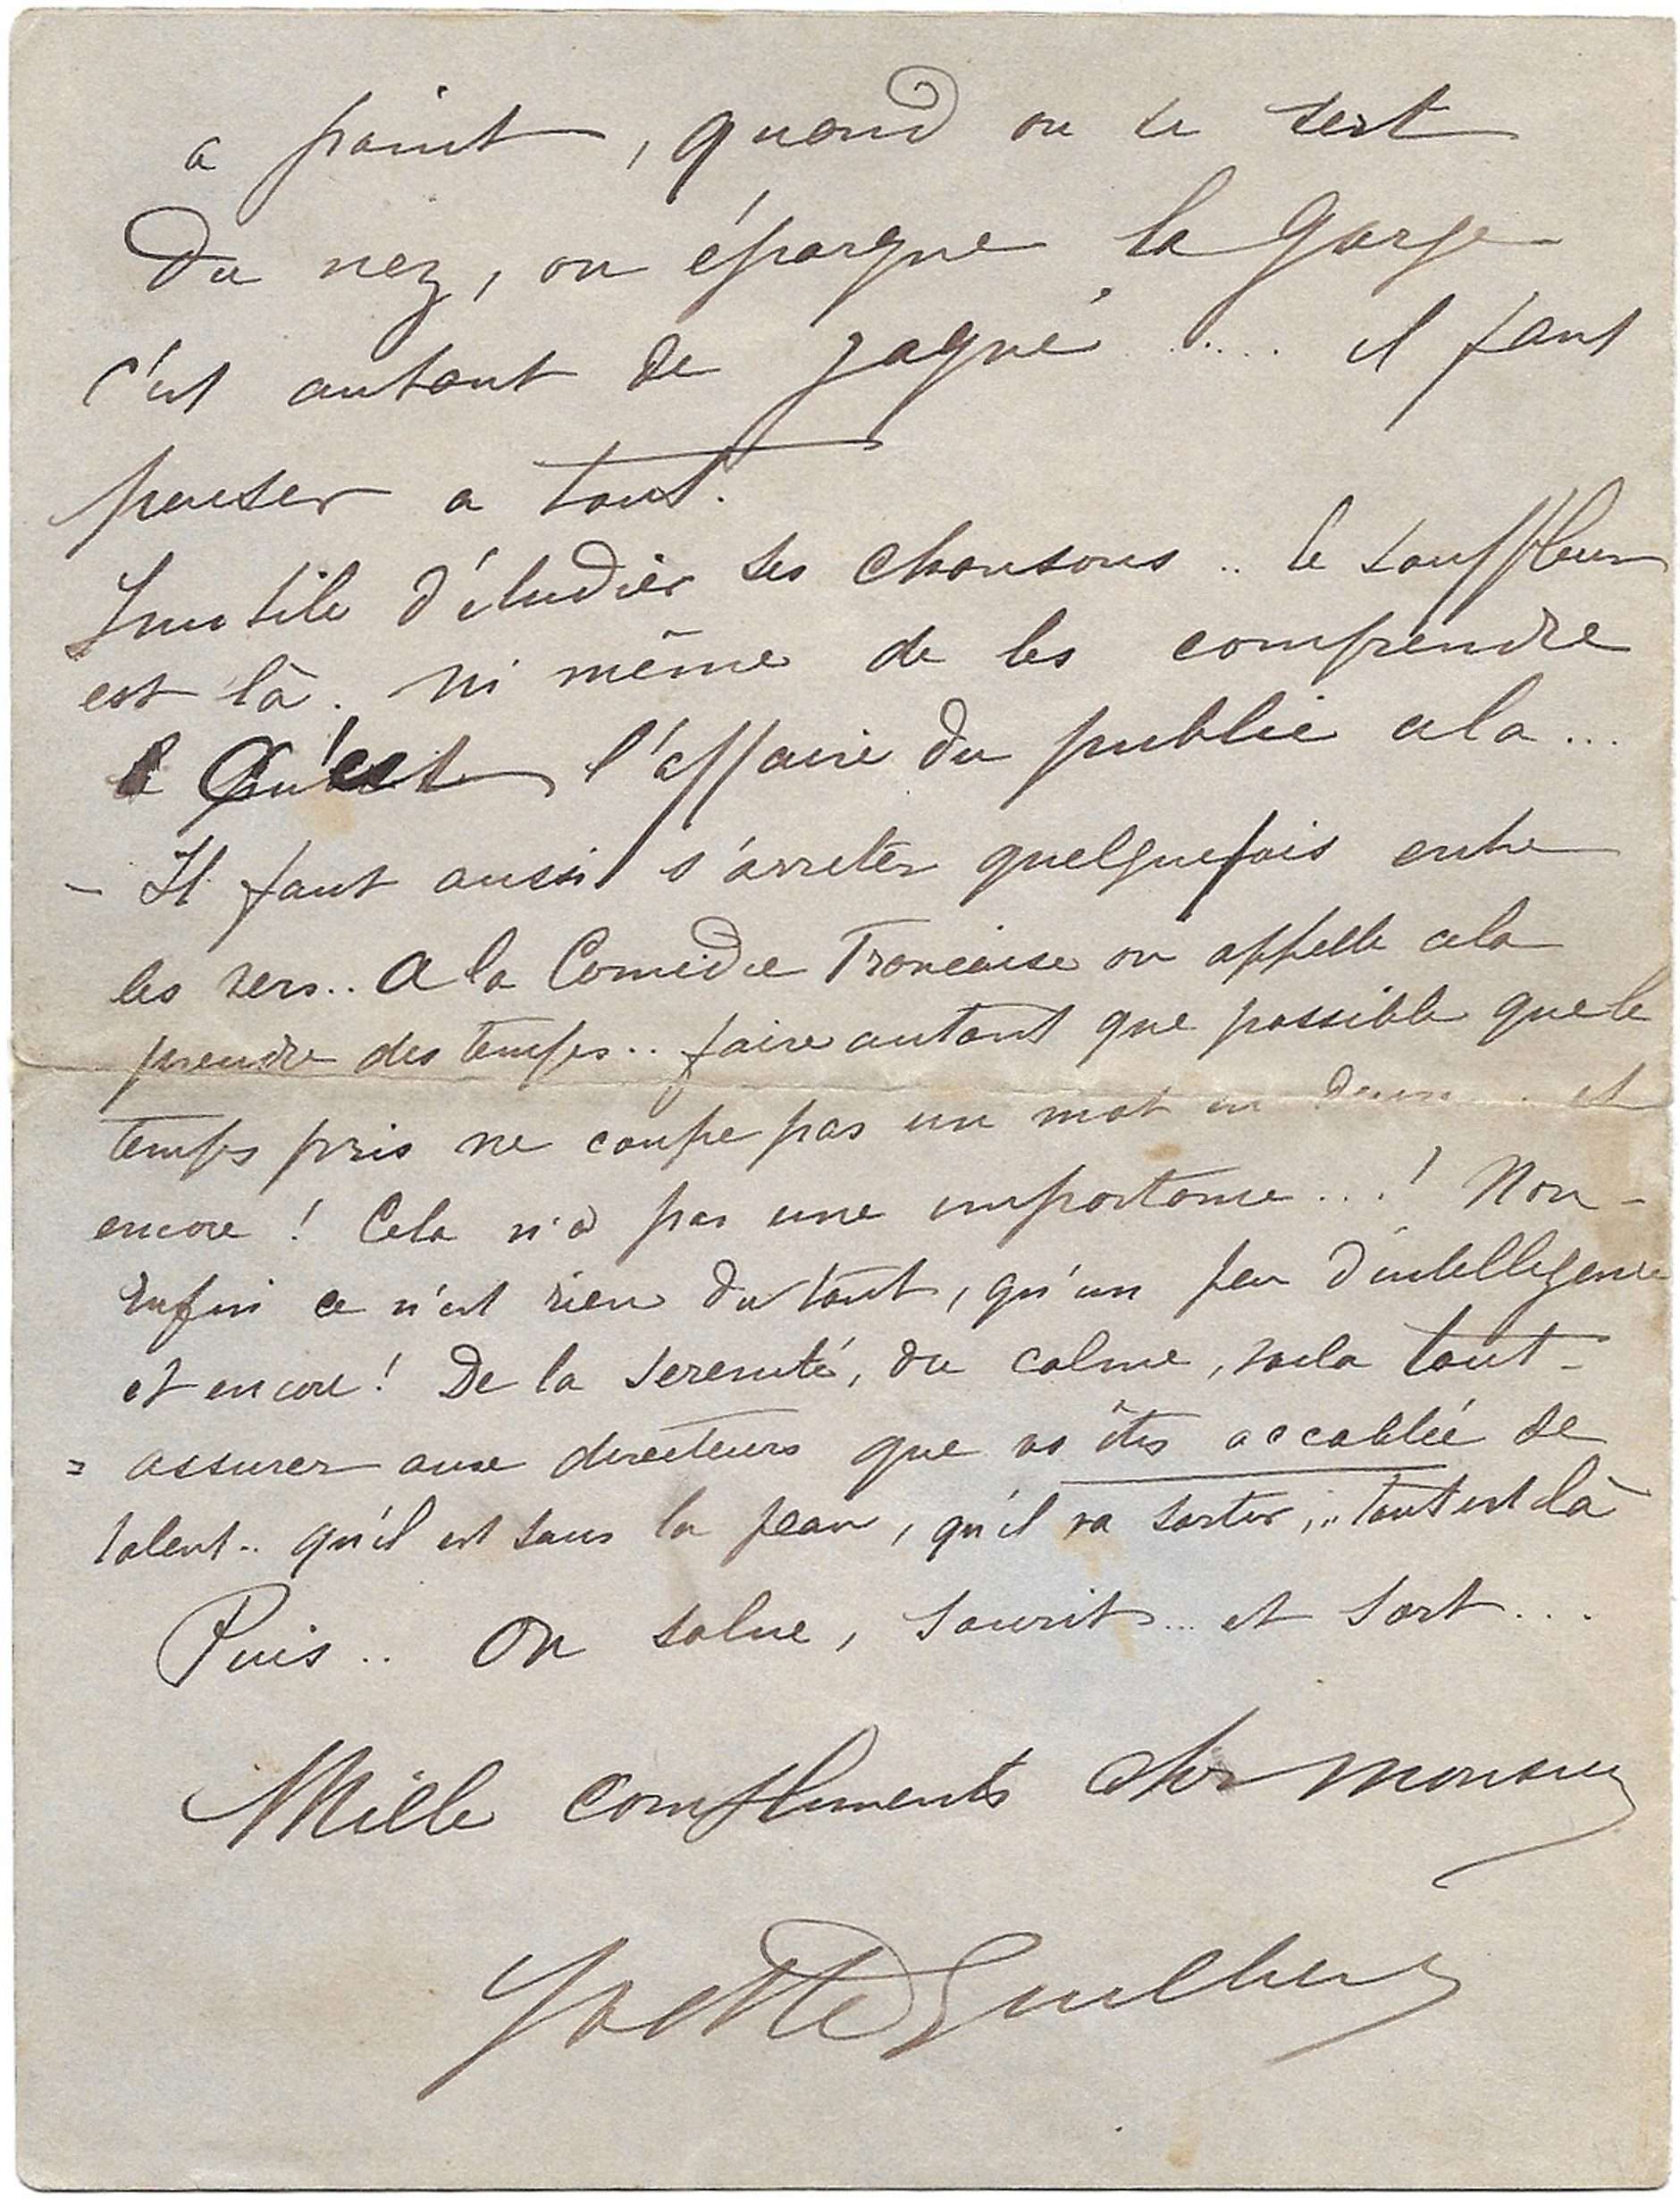 a point, quand on se sert
du nez, on épargne la gorge
c'est autant de gagné ..... il faut
penser a tout.
Inutile d'étudier ses chansons .. le souffleur
est là. ni même de les comprendre
Qu'est l'affaire du public cela ...
- Il faut aussi s'arreter quelquefois entre
les vers.. A la Comédie Francaise on appelle cela
prendre des temps.. faire autant que possible que le
temps pris ne coupe pas un mot en deux .. et
encore ! Cela n'a pas une importance ...! Non -
Enfin ce n'est rien du tout, qu'un peu d'intelligence
et encore ! De la serenité, du calme, voila tout -
= assurer aux directeurs que vs êtes accablée de
talent.. qu'il est sous la peau, qu'il va sortir,.. tout est là
Puis .. On salue, sourit ... et sort ...
Mille compliments cher monsieur
Yvette Guilbert